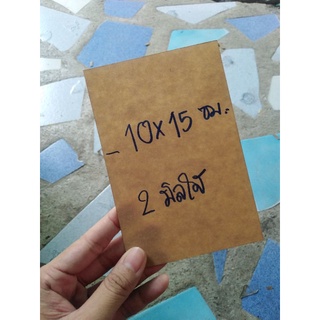 - 10x15 ซม.
2 มิลใส